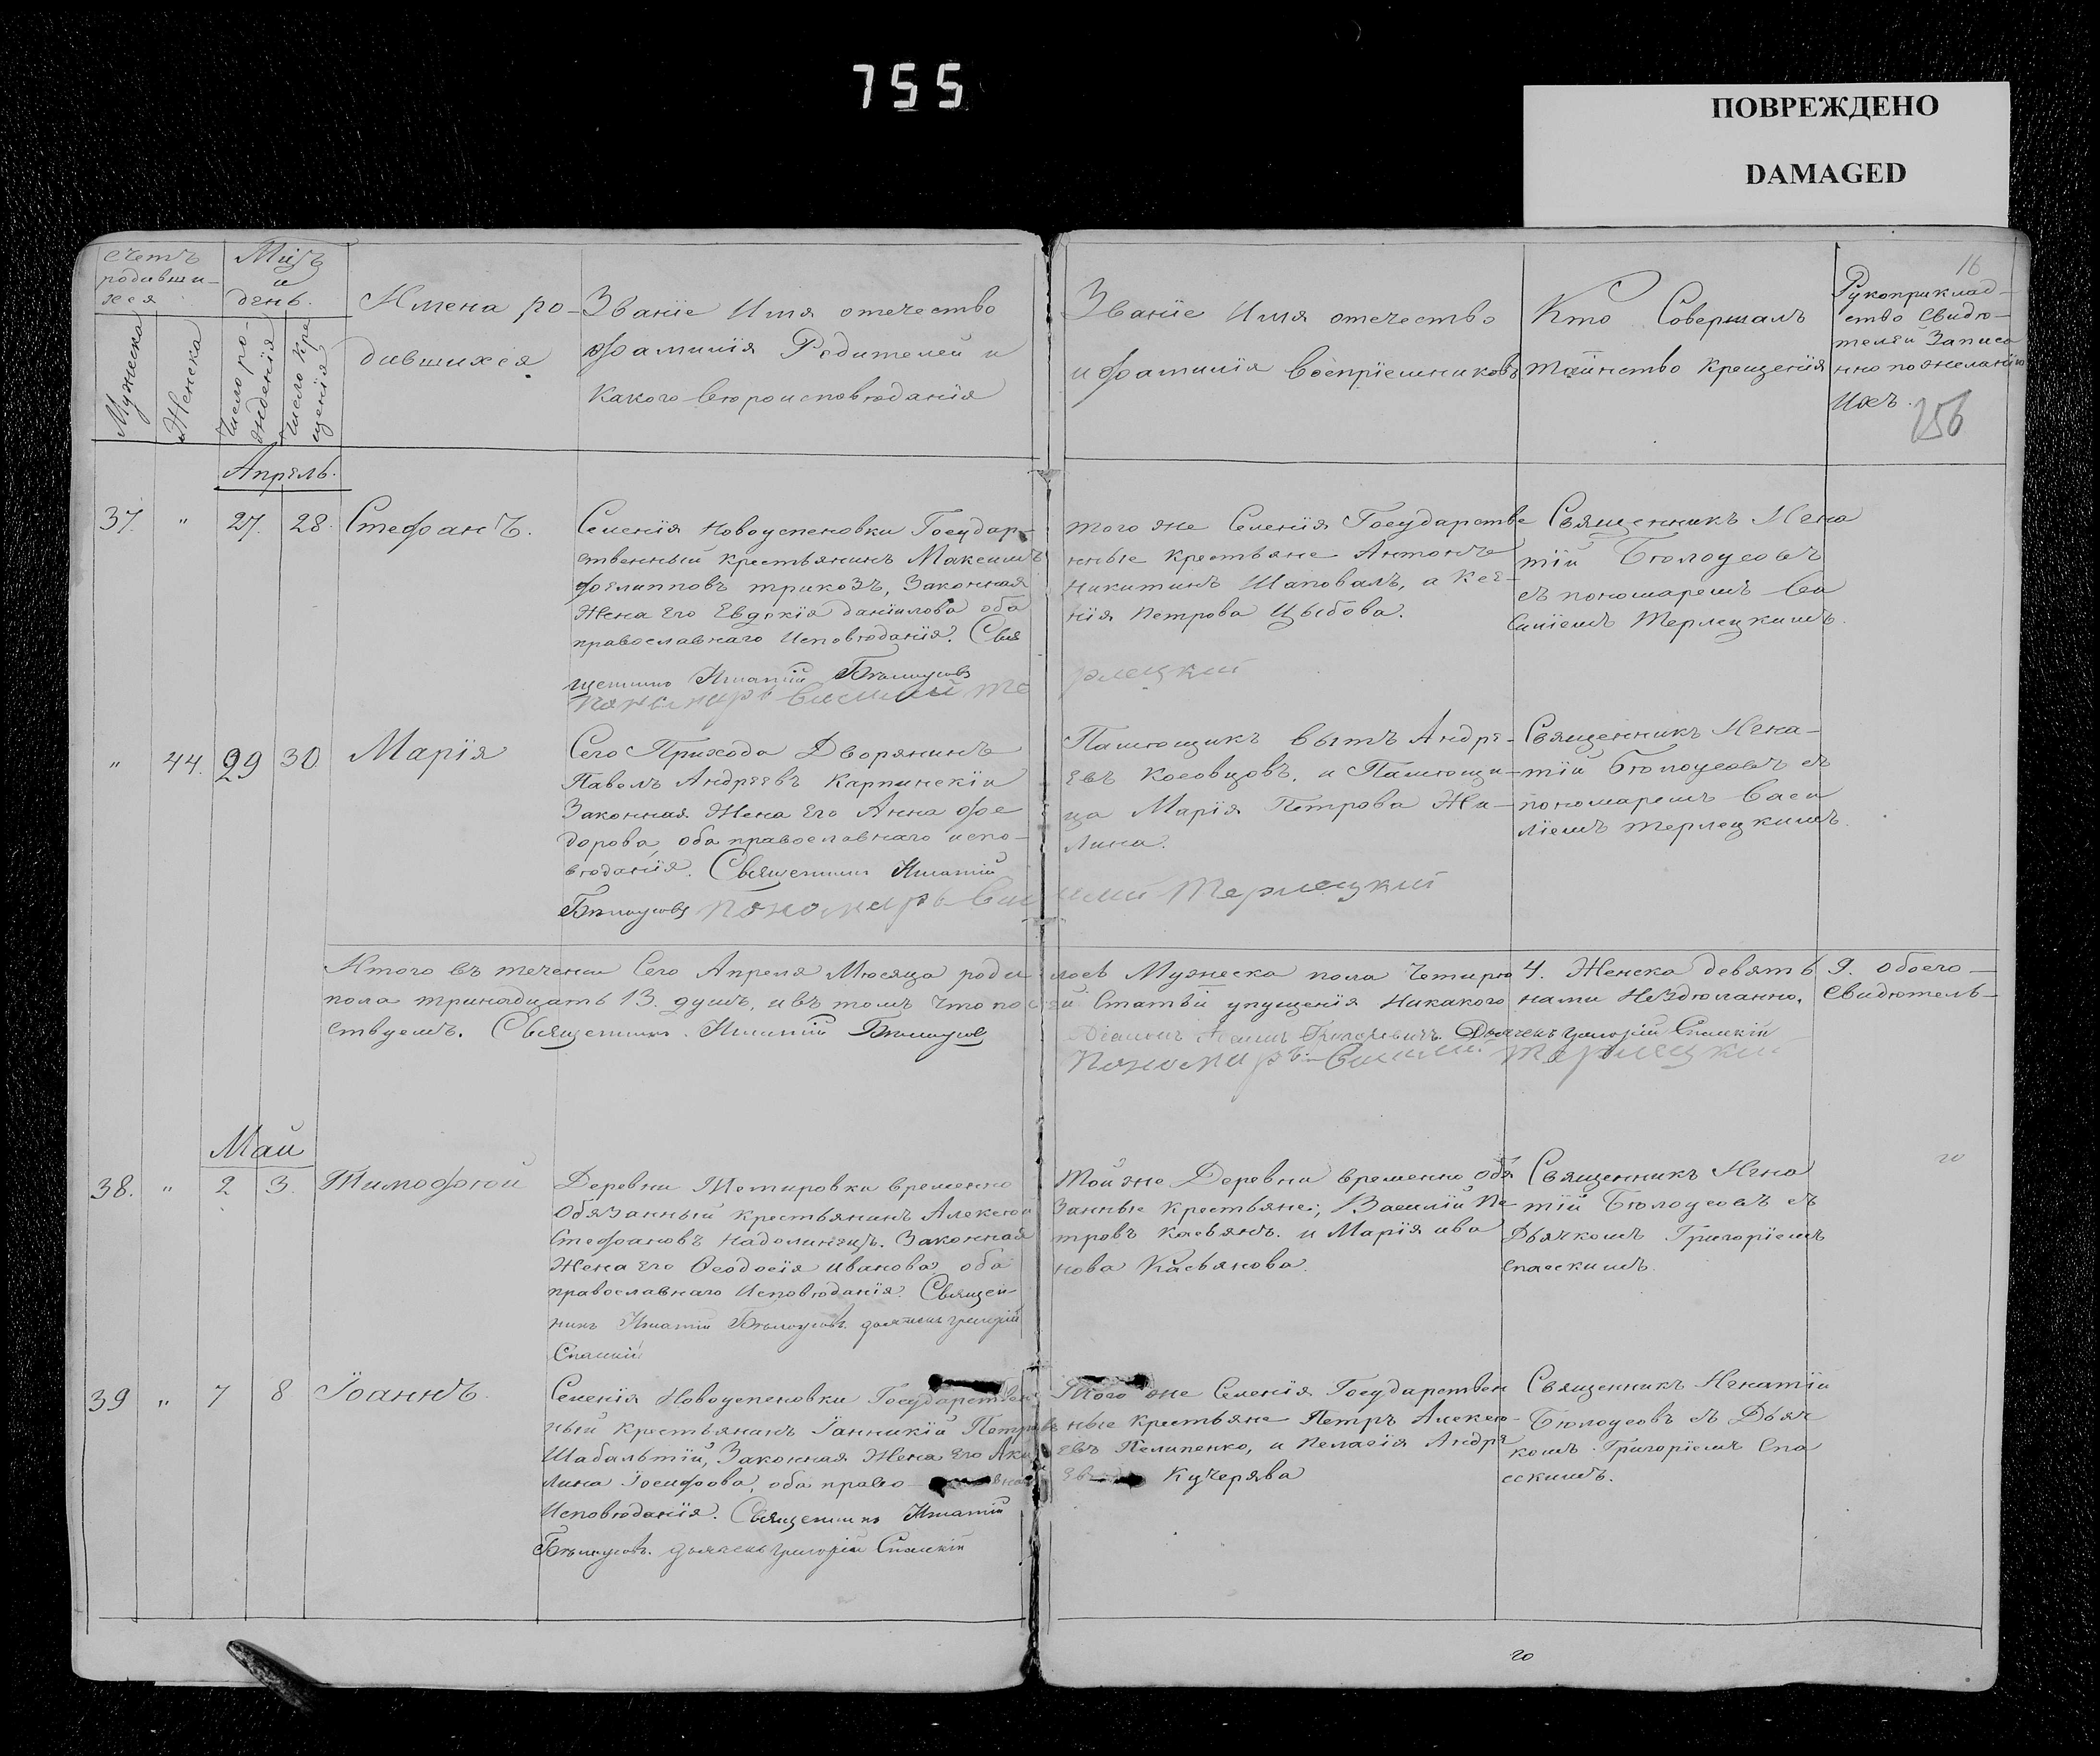 755
ПОВРЕЖДЕНО
DAMAGED
16
Счетъ
родивши-
хся
Мцъ
и
день.
Мужеска
Женска
Число ро-
жденія
Число кре
щенія
Имена ро-
дившихся
Званіе Имя отечество
фамилія Родителей и
Какого вероисповѣданія
Званіе Имя отечество
и фамилія воспріемниковъ
Кто Совершалъ
таинство крещенія
Рукоприклад-
ство Свидѣ-
телей Записа
нно по желанію
ихъ.
256
Апрѣль.
37. " 27. 28. Стефанъ.
Селенія Новоуспеновки Государ-
ственный крестьянинъ Максимъ
Филипповъ трикозъ, Законная
Жена Его Евдокія даніилова оба
православнаго Исповѣданія. Свя
щенникъ Игнатій Бѣлоусовъ
Пономарь Василий Те
рлецкий
того же Селенія Государстве
нные крестьяне Антонъ
Никитинъ Шаповалъ, а Ксе-
нія Петрова Цыбова.
Священникъ Игна
тій Бѣлоусовъ
съ пономаремъ Ва
силіемъ Терлецкимъ.
" 44. 29 30 Марія
Сего Прихода Дворянинъ
Павелъ Андреевъ Карпинскій
Законная Жена Его Анна Фе
дорова, оба православнаго испо-
вѣданія. Священникъ Игнатій
Бѣлоусовъ Пономарь Василий Терлецкий
Помѣщикъ Андре-
евъ Косовцовъ, и Помѣщи-
ца Марія Петрова Жи-
лина.
Священникъ Игна-
тій Бѣлоусовъ съ
пономаремъ Васи
ліемъ Терлецкимъ.
Итого въ теченіи Сего Апреля Мѣсяца родилось Мужеска пола Четыре 4. Женска девять 9. обоего
пола тринадцать 13. душъ, и въ томъ что по сей Статьи упущенія Никакого нами Не здѣланно, Свидѣтель-
ствуемъ. Священникъ Игнатій Бѣлоусовъ
Дьячекъ Григорій Спаскій
Пономарь Василий Терлецкий
Май
38. " 2 3. Тимофей
Деревни временно
Обязанный крестьянинъ Алексей
Стефановъ Законная
Жена Его Феодосія Иванова, оба
православнаго Исповѣданія. Священ-
никъ Игнатій Бѣлоусовъ. дьячекъ Григорій
Спаскій
Той же Деревни временно обя
занные крестьяне; Василій Пе-
тровъ Касьянъ. и Марія ива
нова Касьянова.
Священникъ Игна
тій Бѣлоусовъ съ
Дьячкомъ Григоріемъ
Спасскимъ.
39 " 7 8 Іоаннъ.
Селенія Новоуспеновки Государствен
ный крестьянинъ Іанникій Петровъ
Законная Жена Его Аку
лина Іосифова, оба право
Исповѣданія. Священникъ Игнатій
Бѣлоусовъ. дьячекъ Григорій Спаскій
Того же Селенія Государствен
ные крестьяне Петръ Алексе-
евъ Пелипенко, и Пелагія Андре
ева Кучерява
Священникъ Игнатій
Бѣлоусовъ съ Дьяч
комъ Григоріемъ Спа
сскимъ.
20
20